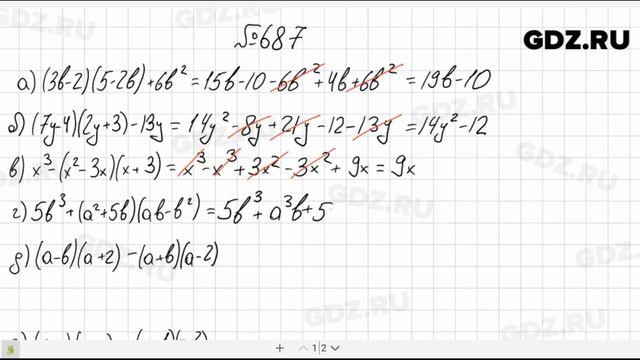 №687
GDZ.RU
а) (3b-2)(5-2b)+6b² = 15b-10-6b²+4b+6b² = 19b-10
б) (7y-4)(2y+3)-13y = 14y²-8y+21y-12-13y = 14y²-12
в) x³-(x²-3x)(x+3) = x³-x³+3x²-3x²+9x = 9x
г) 5b³+(a²+5b)(ab-b²) = 5b³+a³b+5
д) (a-b)(a+2)-(a+b)(a-2)
1|2